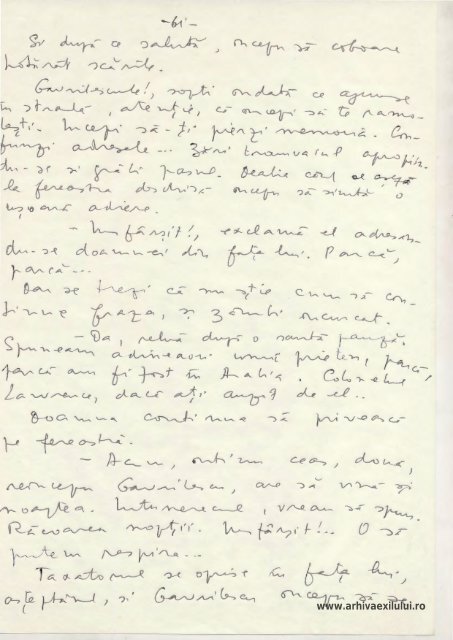 -61-
Și după ce salută, începu să coboare
hotărât scările.
Gavrilescule!, șopti îndată ce ajunse
în stradă, atenție, că începi să te ramo-
lești. Începi să-ți pierzi memoria. Con-
funzi adresele... Zări tramvaiul apropiin-
du-se și grăbi pasul. De-abia când se așeză
la fereastra deschisă începu să simtă o
ușoară adiere.
- Însfârșit!, exclamă el adresân-
du-se doamnei din fața lui. Parcă,
parcă...
Dar se trezi că nu știe cum să con-
tinue fraza, și zâmbi încurcat.
- Da, reluă după o scurtă pauză.
Spuneam adineaori unui prieten, parcă,
parcă am fi fost în Arabia. Colonelul
Lawrence, dacă ați auzit de el..
Doamna continua să privească
pe fereastră.
- Acum, într'un ceas, două,
reîncepu Gavrilescu, are să vină și
noaptea. Întunerecul, vreau să spun.
Răcoarea nopții. Însfârșit!.. O să
putem respira...
Taxatorul se oprise în fața lui,
așteptând, și Gavrilescu începu să se
www.arhivaexilului.ro